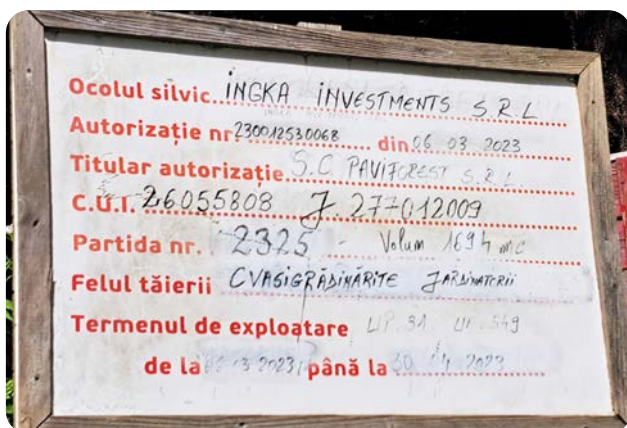 Ocolul silvic INGKA INVESTMENTS S.R.L
Autorizație nr. 230012530068 din 06.03 2023
Titular autorizație S.C. PAVIFOREST S.R.L.
C.U.I. 26055808 J 277012009
Partida nr. 2325 - Volum 1694 mc
Felul tăierii CVASIGRĂDINĂRITE JARDINATORII
Termenul de exploatare UP. 31. ur. 549
de la 3 2023 până la 30 2023